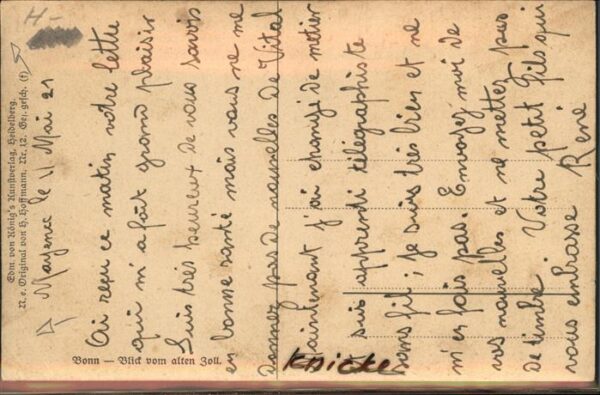 H-
Edm. von König's Kunstverlag, Heidelberg.
N. e. Original von H. Hoffmann. Nr. 12. Ges. gesch. (f)
Mayence le 11 Mai 21
Ai reçu ce matin votre lettre
qui m'a fait grand plaisir
Suis très heureux de vous savoir
en bonne santé mais vous ne me
donnez pas de nouvelles de Vital
Maintenant j'ai changé de métier
je suis apprenti télégraphiste
sans fil ; Je suis très bien et ne
m'en fais pas. Envoyez moi de
vos nouvelles et ne mettez pas
de timbre. Votre petit fils qui
vous embrasse René
Bonn — Blick vom alten Zoll.
Knicke